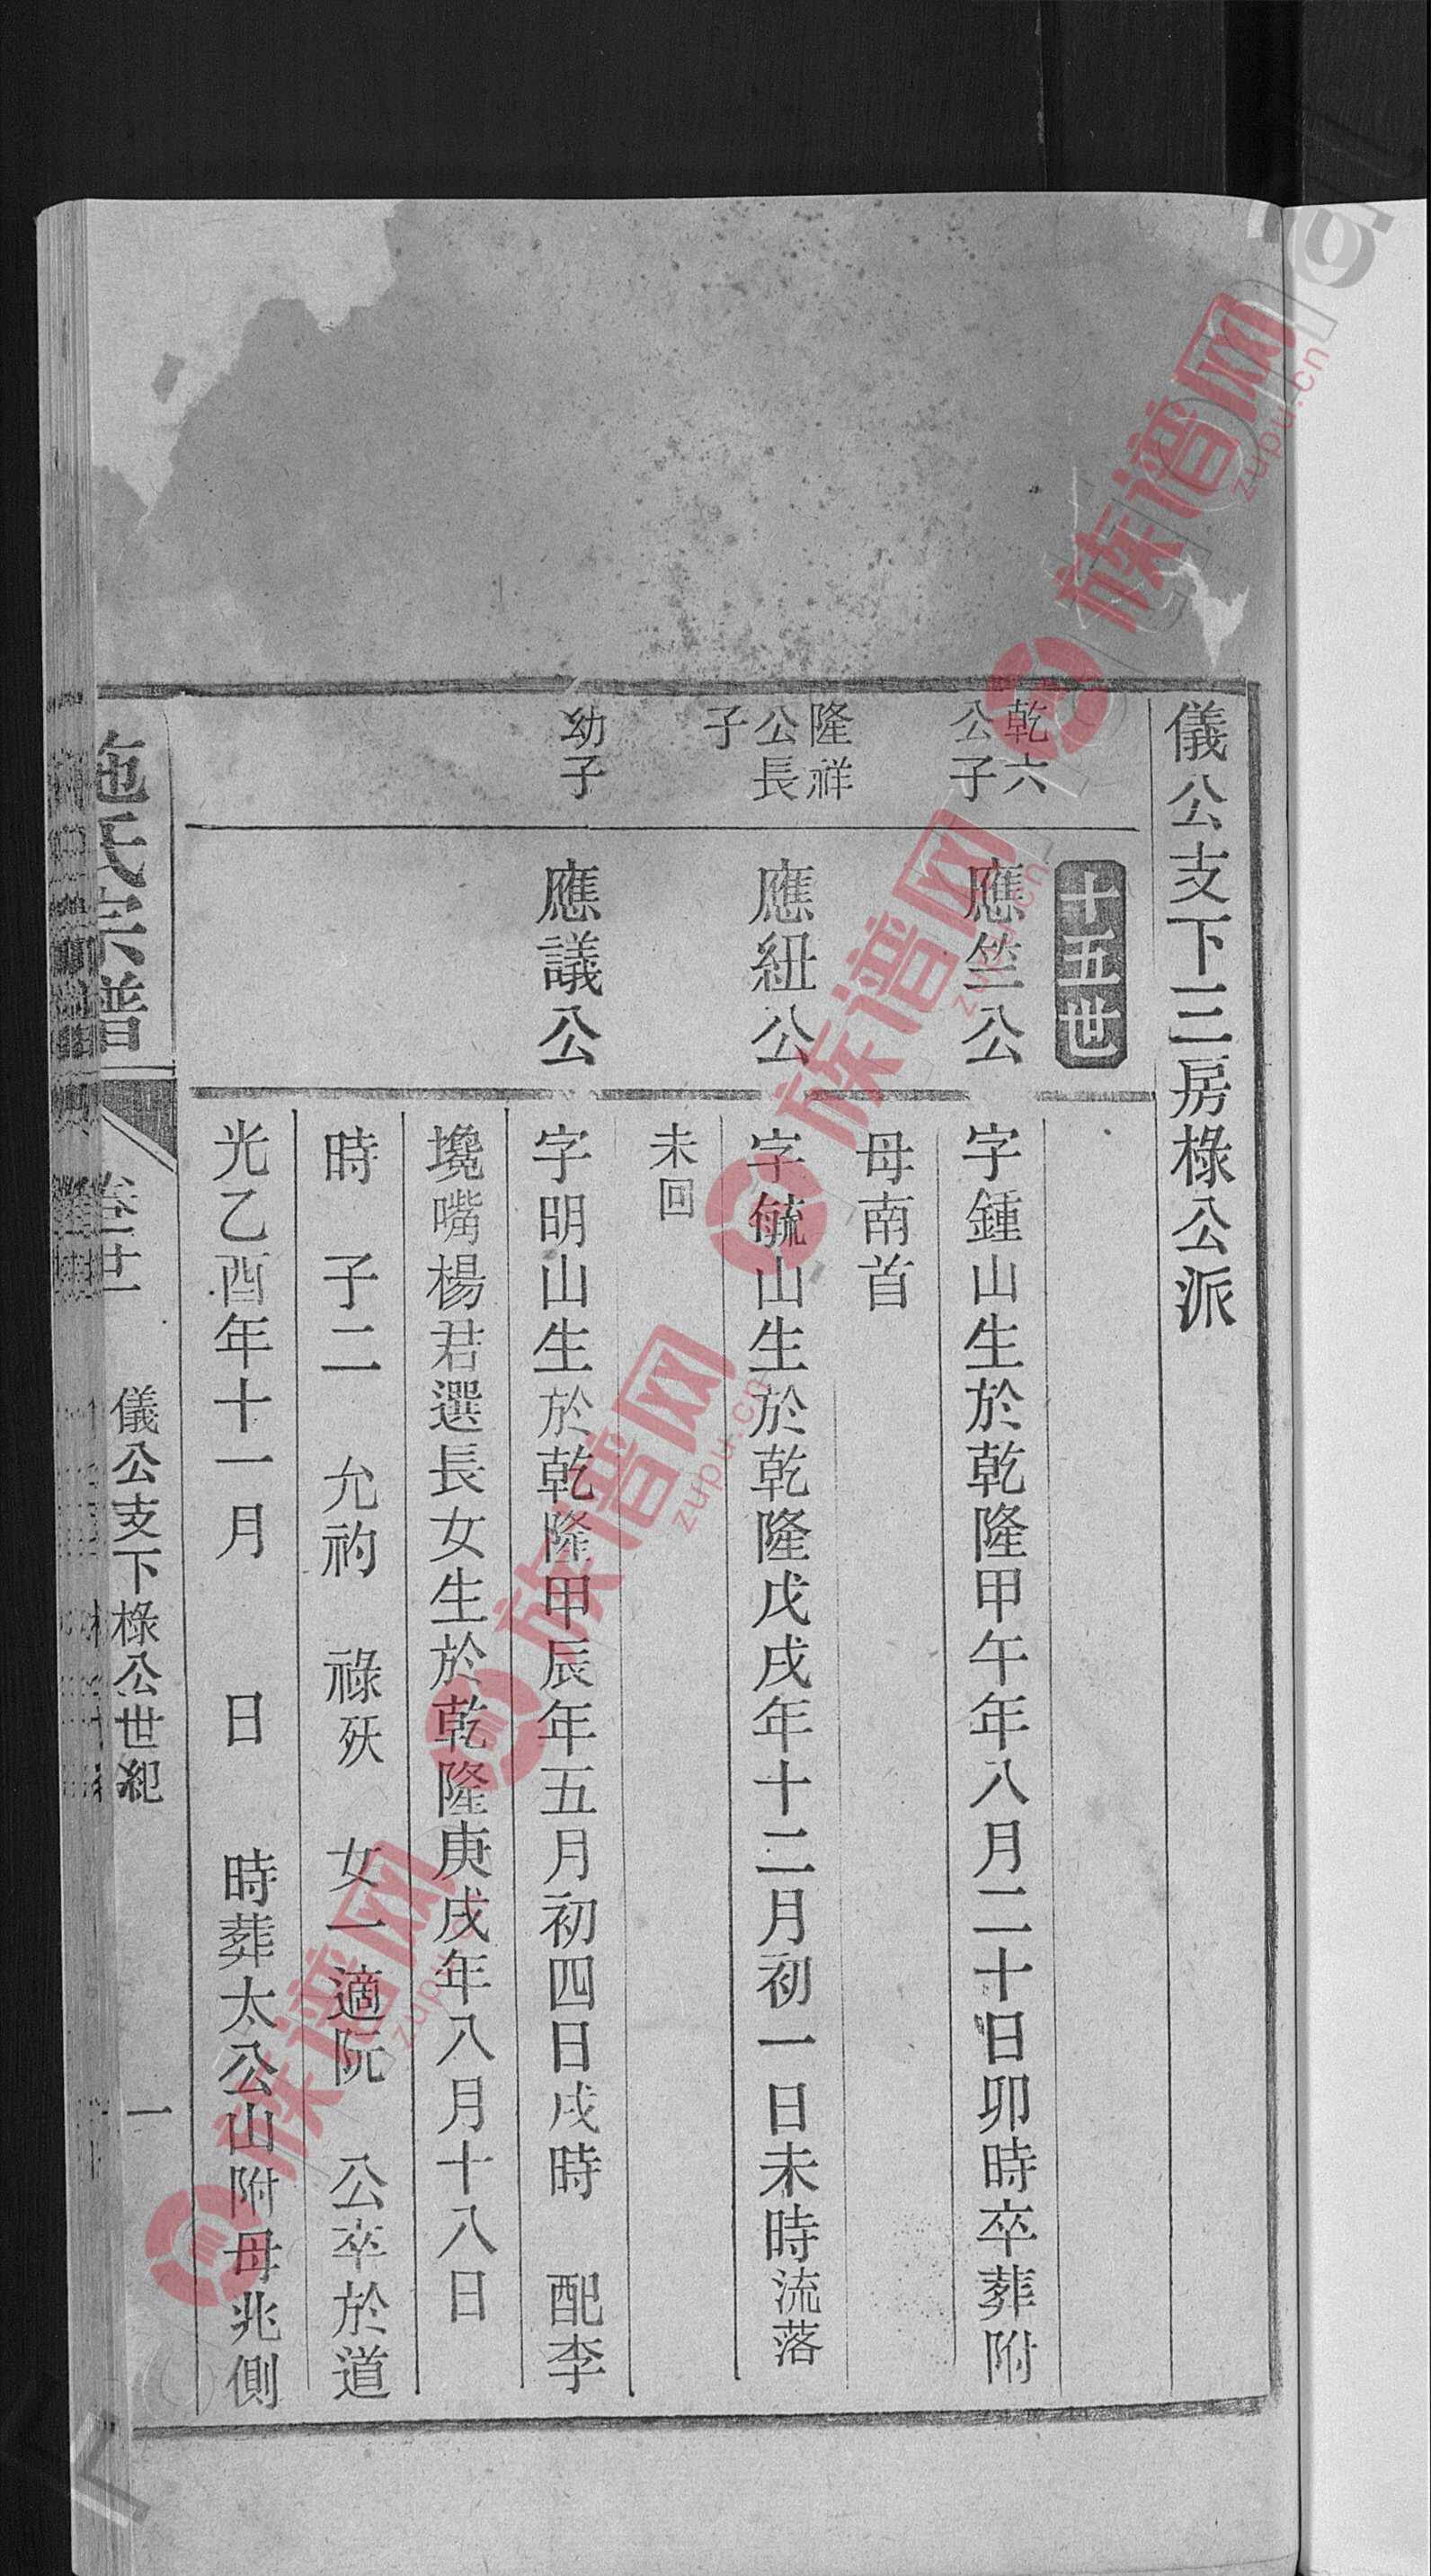 儀公支下三房椂公派
十五世
乾六
公子
應竺公
字鍾山生於乾隆甲午年八月二十日卯時卒葬附
母南首
隆祥
公長
子
應紐公
字毓山生於乾隆戊戌年十二月初一日未時流落
未回
幼子
應議公
字明山生於乾隆甲辰年五月初四日戌時 配李
墝嘴楊君選長女生於乾隆庚戌年八月十八日
時 子二 允礿 祿殀 女一適阮 公卒於道
光乙酉年十一月 日 時葬太公山附母兆側
施氏宗譜
卷廿
儀公支下椂公世紀
一
族谱网
zupu.cn
族谱网
zupu.cn
族谱网
zupu.cn
族谱网
zupu.cn